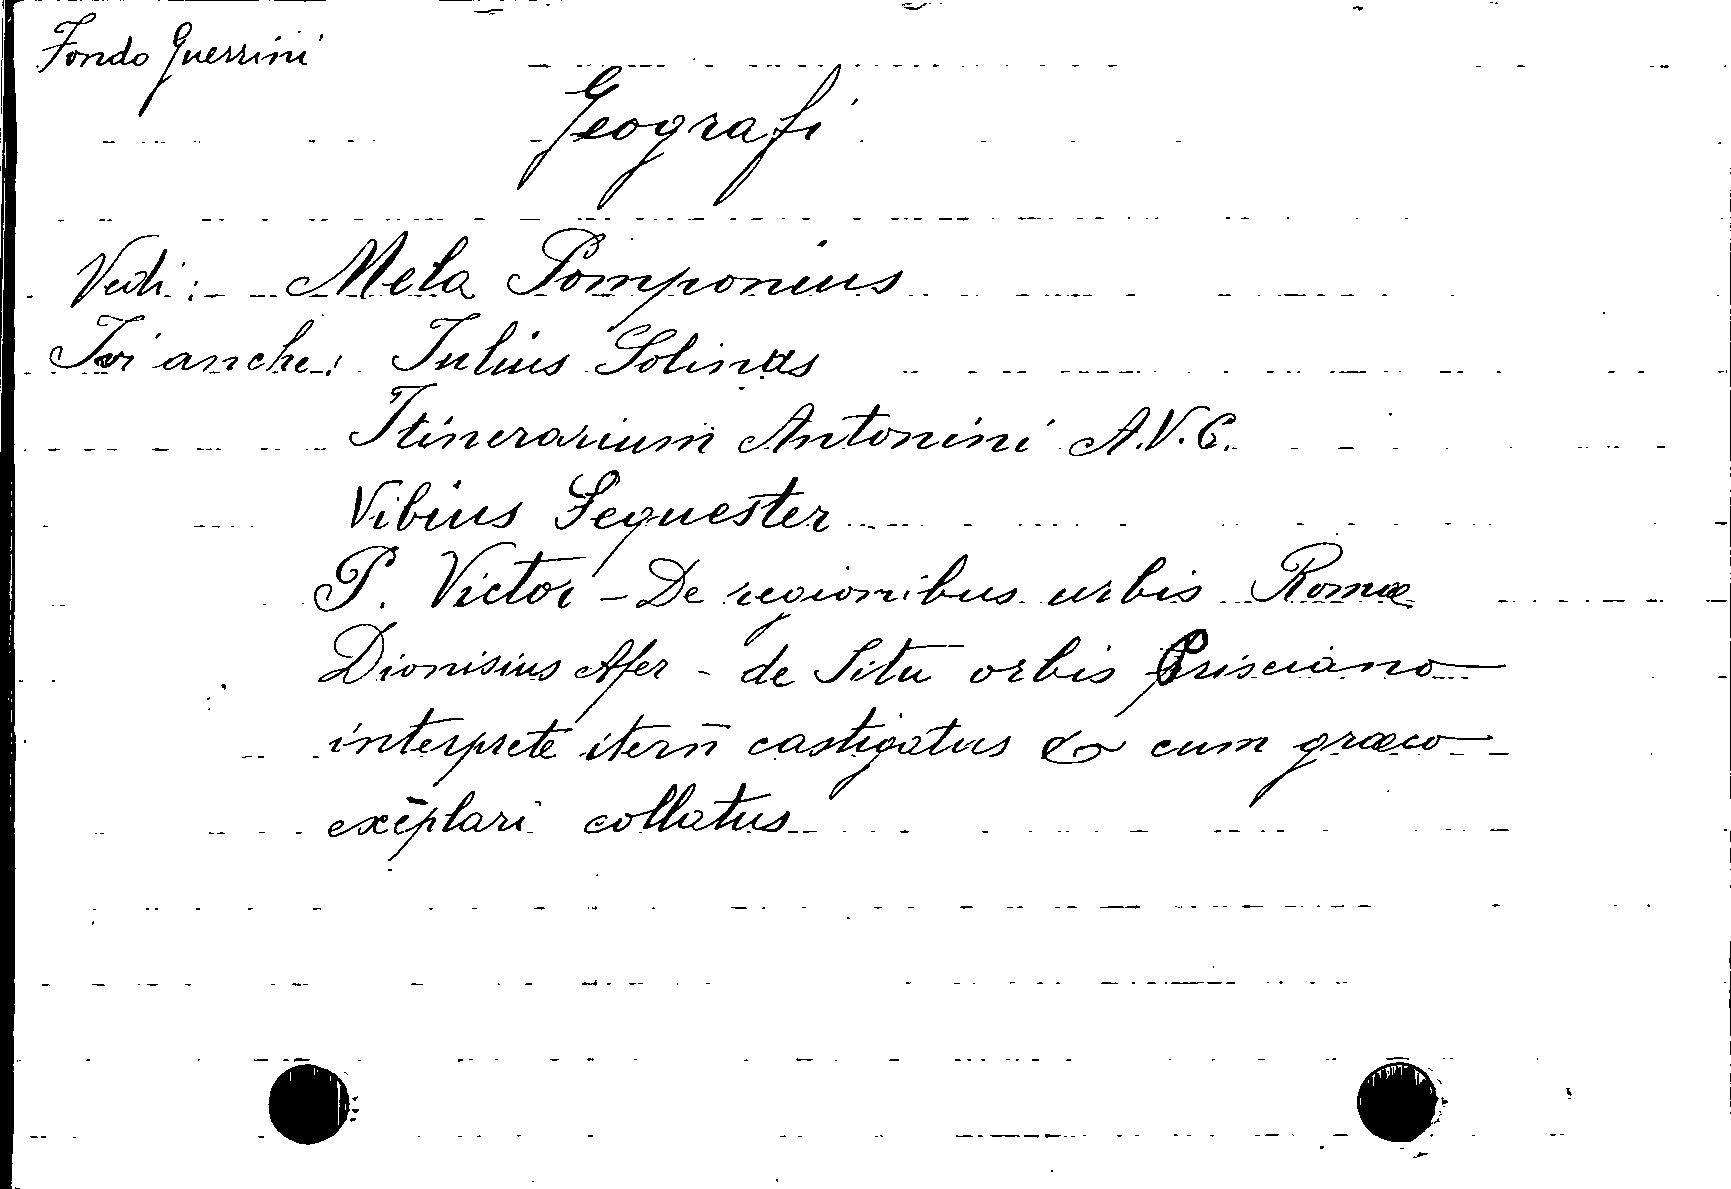 Fondo Guerrini
Geografi
Vedi: Mela Pomponius
Ivi anche: Julius Solinus
Itinerarium Antonini A.V.C.
Vibius Sequester
P. Victor - De regionibus urbis Romæ
Dionisius Afer - de Situ orbis Prisciano
interprete iterū castigatus & cum græco
exēplari collatus